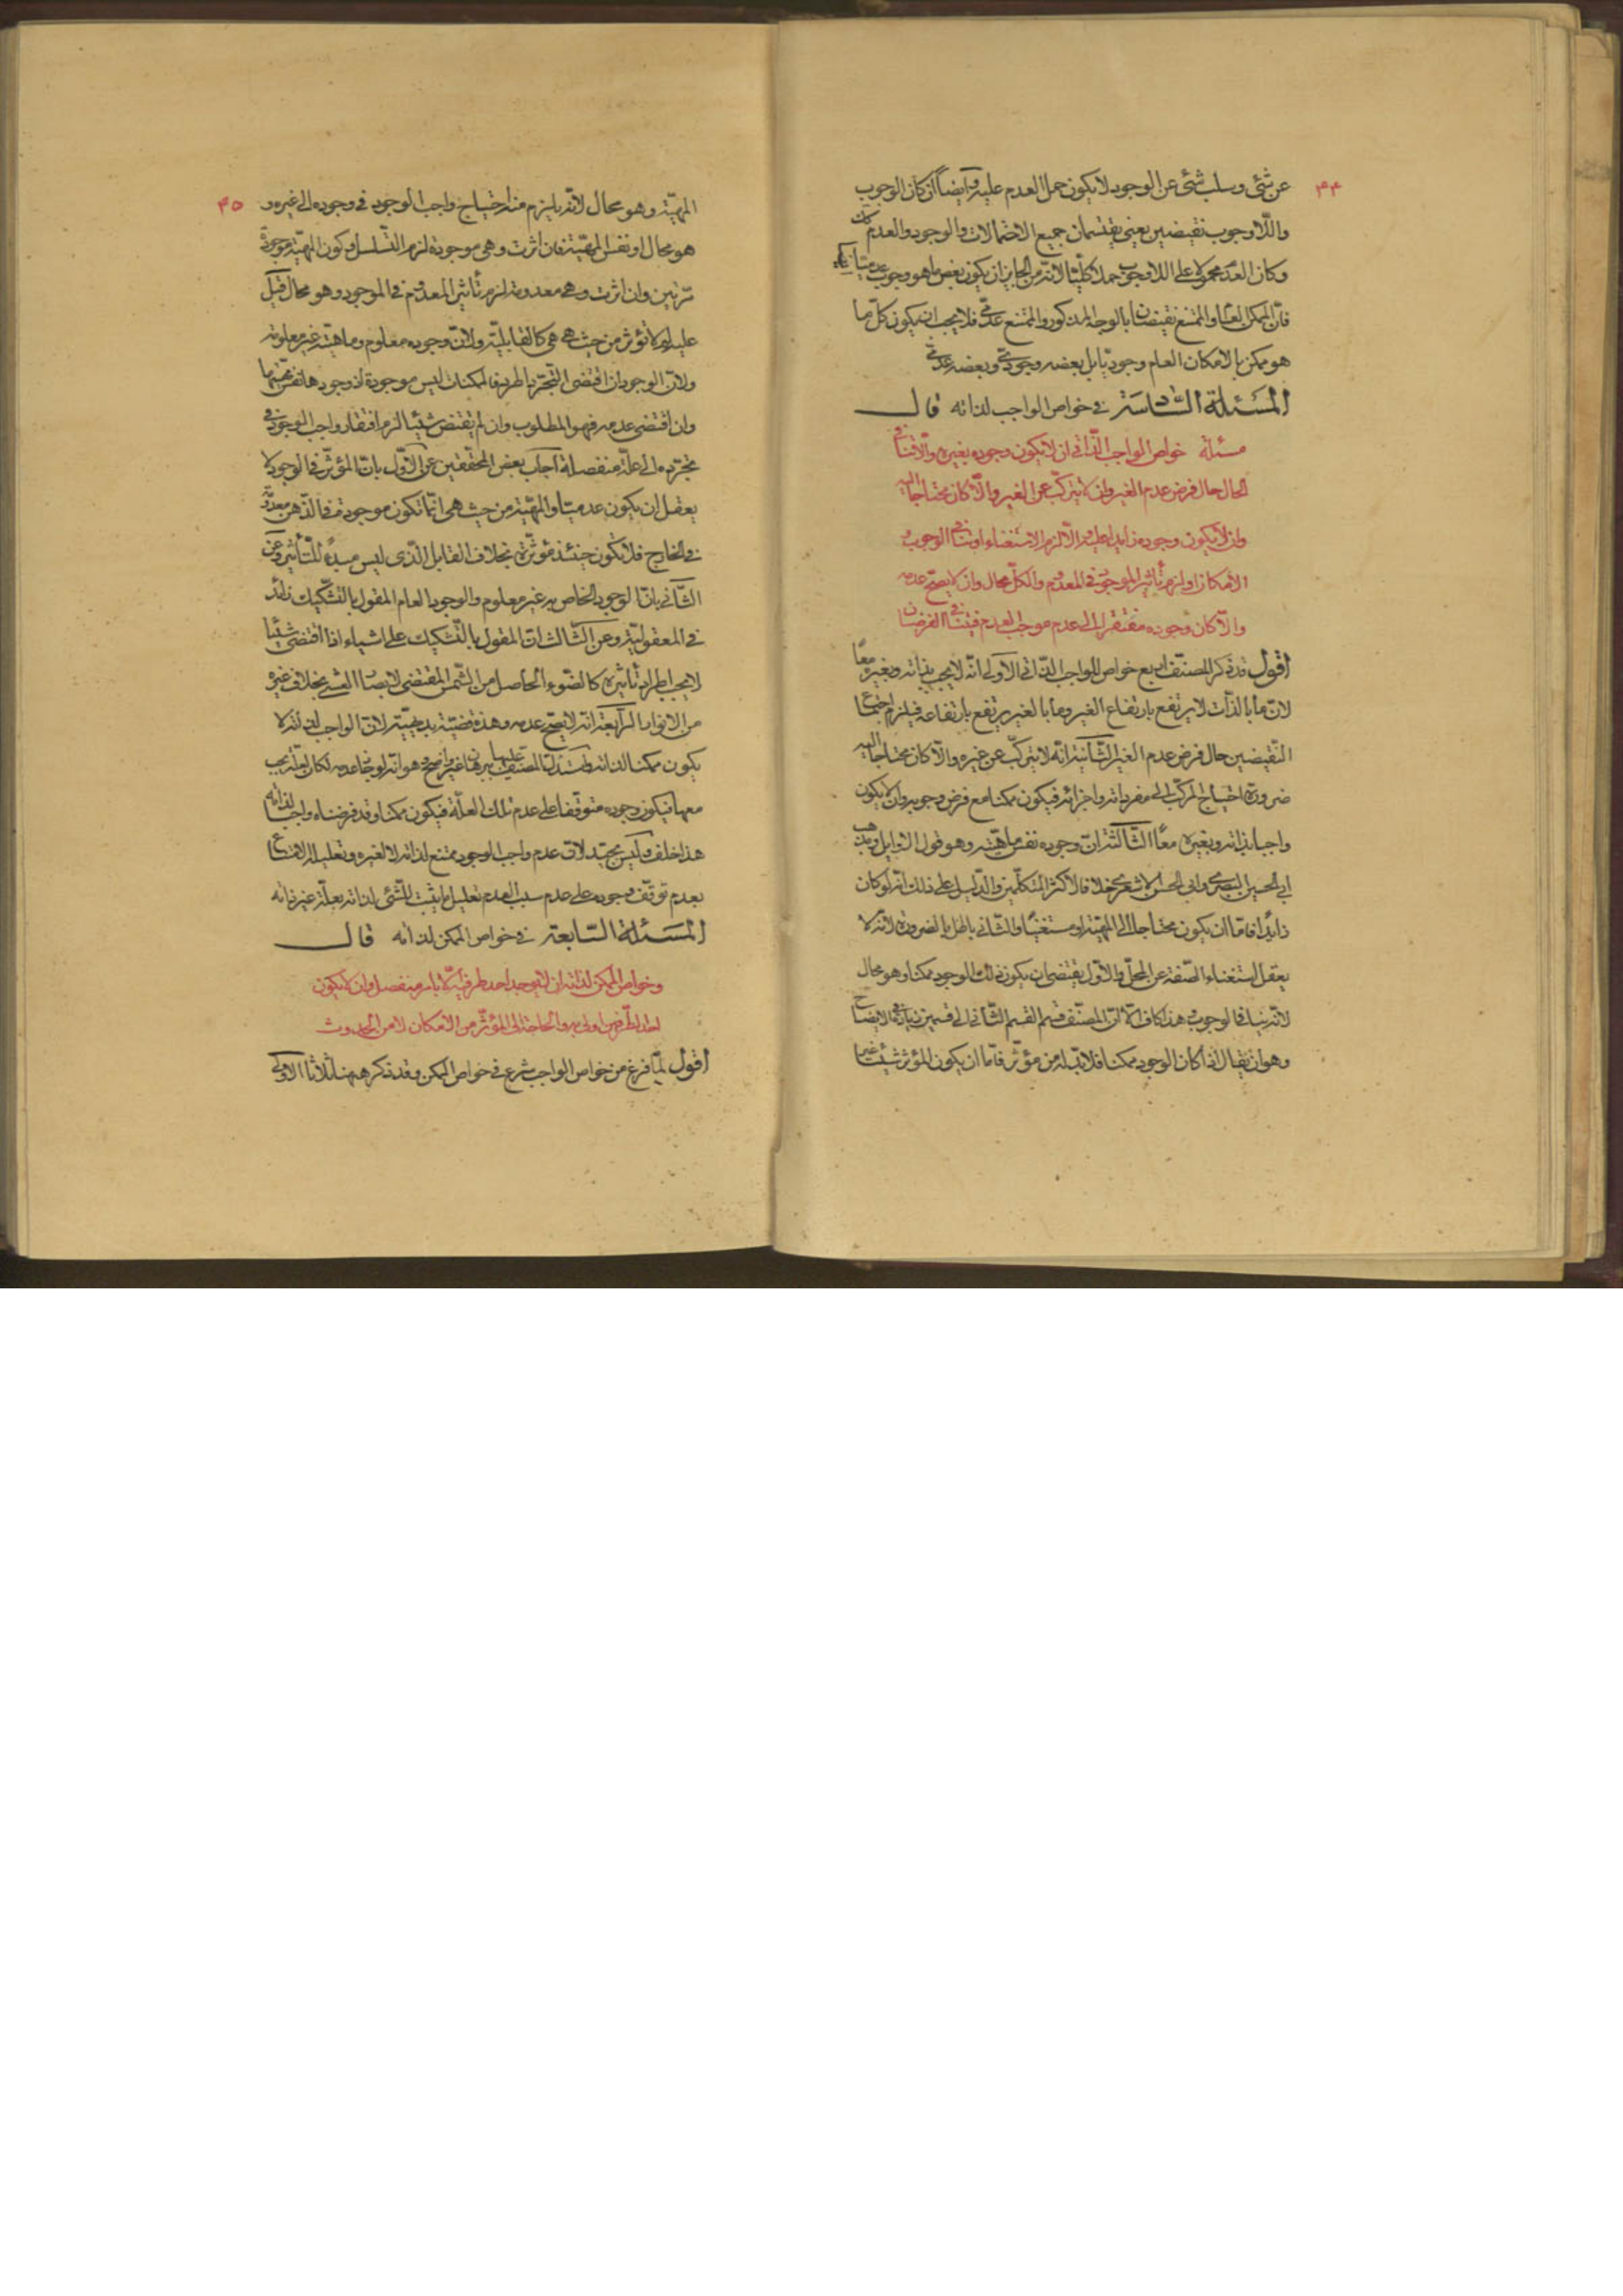 ٤٤
عن شئ وسلب شئ عن الوجود لا يكون حمل العدم عليه وايضاً ان كان الوجوب
واللاوجوب نقيضين يعنى يقتسمان جميع الاحتمالات والوجود والعدم كان
وكان العدم محمولا على اللاوجوب حملا كليّا لانّه من الجايز ان يكون بعض ما هو وجوب عدميّا
فانّ الممكن العام والممتنع نقيضان بالوجه المذكور والممتنع عدمىّ فلا يجب ان يكون كلّ ما
هو ممكن بالامكان العام وجوديّا بل بعضه وجودىّ وبعضه عدمىّ
المسئلة السّادسة فى خواص الواجب لذاته قال
مسئلة خواص الواجب الذّاتى ان لا يكون وجوده بغيره والّا فنافى
الحال حال فرض عدم الغير وان لا يتركّب عن الغير والّا كان محتاجا اليه
وان لا يكون وجوده زايدا عليه والّا لزم الاستغناء او ينافى الوجوب
الامكان او لزم تأثير الموجود فى المعدوم والكلّ محال وان لا يصحّ عدمه
والّا كان وجوده مفتقرا الى عدم موجب العدم فيتنافى الفرضان
اقول قد ذكر المصنّف اربع خواص للواجب الذّاتى الاولى انّه لا يجب بذاته وبغيره معًا
لانّ ما بالذّات لا يرتفع بارتفاع الغير وما بالغير يرتفع بارتفاعه فيلزم اجتماع
النّقيضين حال فرض عدم الغير الثّانية انّه لا يتركّب عن غيره والّا كان محتاجا اليه
ضرورة احتياج المركّب الى مفرداته واجزائه فيكون ممكنا مع فرض وجوبه وان لا يكون
واجبا بذاته وبغيره معًا الثّالثة انّ وجوده نفس ماهيّته وهو قول الاوايل ومذهب
ابى الحسين البصرى وابى الحسن الاشعرى خلافا لاكثر المتكلّمين والدّليل على ذلك انّه لو كان
زائدًا فامّا ان يكون محتاجا الى المهيّة او مستغنيًا والثّانى باطل بالضرورة لانّه لا
يعقل استغناء الصّفة عن المحلّ والاوّل يقتضى ان يكون ذلك الوجود ممكنا وهو محال
لانّه ينافى الوجوب وهذا كاف الّا انّ المصنّف قسم القسم الثّانى الى قسمين زيادة فى الايضاح
وهو ان يقال اذا كان الوجود ممكنا فلا بدّ له من مؤثّر فامّا ان يكون المؤثر شيئا غير
٤٥
المهيّة وهو محال لانّه يلزم منه احتياج واجب الوجود فى وجوده الى غيره و
هو محال او نفس المهيّة فان اثرت وهى موجودة لزم التّسلسل او كون المهيّة موجودة
مرّتين وان اثرت وهى معدومة لزم تأثير المعدوم فى الموجود وهو محال قيل
عليه لم لا تؤثر من حيث هى هى كالقابليّة ولانّ وجوده معلوم وماهيّته غير معلومة
ولانّ الوجود ان اقتضى التّجرّد اطرد فالممكنات ليس موجودة او وجودها نفس مهيّتها
وان اقتضى عدمه فهو المطلوب وان لم يقتض شيئا لزم افتقار واجب الوجود فى
تجرّده الى علّة منفصلة اجاب بعض المحقّقين عن الاوّل بانّ المؤثّر فى الوجود لا
يعقل ان يكون عدميّا والمهيّة من حيث هى انّما تكون موجودة فى الذّهن معدومة
فى الخارج فلا تكون حينئذ مؤثّرة بخلاف القابل الّذى ليس مبدءً للتّأثير وعن
الثّانى بانّ الوجود الخاص به غير معلوم والوجود العام المقول بالتّشكيك زائد
فى المعقوليّة وعن الثّالث انّ المقول بالتّشكيك على اشياء اذا اقتضى شيئا
لا يجب اطراد تأثيره كالضّوء الحاصل من الشّمس المقتضى لابصار العشى بخلاف غيره
من الانوار الرّابعة انّه لا يصحّ عدمه وهذه قضيّة بديهيّة لانّ الواجب لذاته لا
يكون ممكنا لذاته واستدلّ المصنّف عليها ببرهان غير واضح وهو انّه لو جاز عدمه لكان لعلّة يجب
معها فيكون وجوده متوقّفا على عدم تلك العلّة فيكون ممكنا وقد فرضناه واجبا لذاته
هذا خلف وليس بجيّد لانّ عدم واجب الوجود ممتنع لذاته لا لغيره وتعليل الامتناع
بعدم توقّف وجوده على عدم سبب العدم تعليل ما يثبت للشّئ لذاته بعلّة غير ذاته
المسئلة السّابعة فى خواص الممكن لذاته قال
وخواص الممكن لذاته ان لا يوجد احد طرفيه الّا بامر منفصل وان لا يكون
احد الطّرفين اولى به والحاجة الى المؤثّر من الامكان لا من الحدوث
اقول لمّا فرغ من خواص الواجب شرع فى خواص الممكن وقد ذكر ههنا ثلاثا الاولى